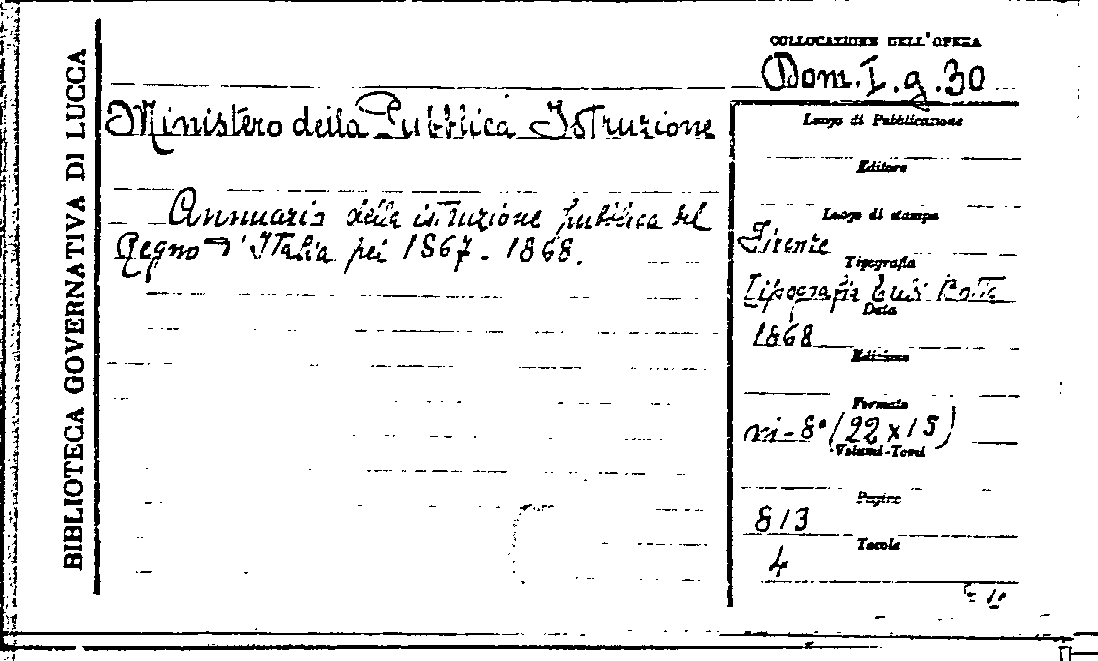 BIBLIOTECA GOVERNATIVA DI LUCCA
COLLOCAZIONE DELL'OPERA
Dom. I. g. 30
Ministero della Pubblica Istruzione
Annuario della istruzione pubblica del
Regno d'Italia pei 1867-1868.
Luogo di Pubblicazione
Editore
Luogo di stampa
Firenze
Tipografia
Tipografia
Data
1868
Edizione
Formato
in-8° (22x15)
Volumi-Tomi
Pagine
813
Tavole
4